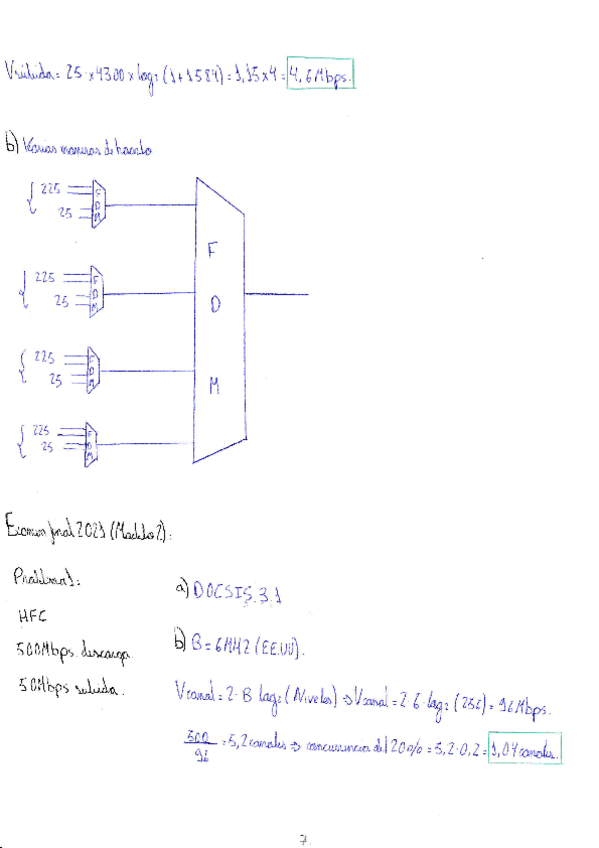 Vsubida = 25 · x 4300 x log₂ (1+1584) = 1,15 x 4 = 4,6 Mbps.
b) Varias maneras de hacerlo
225
25
F
D
M
225
25
F
D
M
225
25
F
D
M
225
25
F
D
M
F
D
M
Examen final 2021 (Modelo 2):
Problema 1:
HFC
500Mbps descarga.
50Mbps subida.
a) DOCSIS 3.1
b) B = 6MHz (EE.UU).
Vcanal = 2 · B log₂ (Niveles) => Vcanal = 2 · 6 · log₂ (256) = 96 Mbps.
500/96 = 5,2 canales => concurrencia del 20% = 5,2 · 0,2 = 1,04 canales.
7